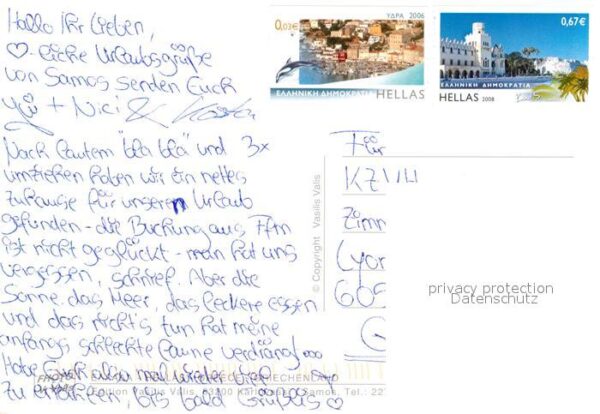 Hallo Ihr Lieben,
♡-liche Urlaubsgrüße
von Samos senden Euch
+ Nici &
Nach lautem "bla bla" und 3x
umziehen haben wir ein nettes
zuhause für unseren Urlaub
gefunden - die Buchung aus Ffm
ist nicht geglückt - man hat uns
vergessen, schnief. Aber die
Sonne, das Meer, das leckere essen
und das nichts tun hat meine
anfangs schlechte Laune verdrängt...
Habe Euch
zu erzählen, bis bald Grüßlis ♡
0,02€
ΥΔΡΑ 2006
ΕΛΛΗΝΙΚΗ ΔΗΜΟΚΡΑΤΙΑ
HELLAS
0,67€
ΕΛΛΗΝΙΚΗ ΔΗΜΟΚΡΑΤΙΑ
HELLAS 2008
© Copyright Vasilis Valis
Für
KZVH
Zimm
Lyon
60
privacy protection
Datenschutz
Edition Vasilis Valis, 83200 Samos, Tel.: 22